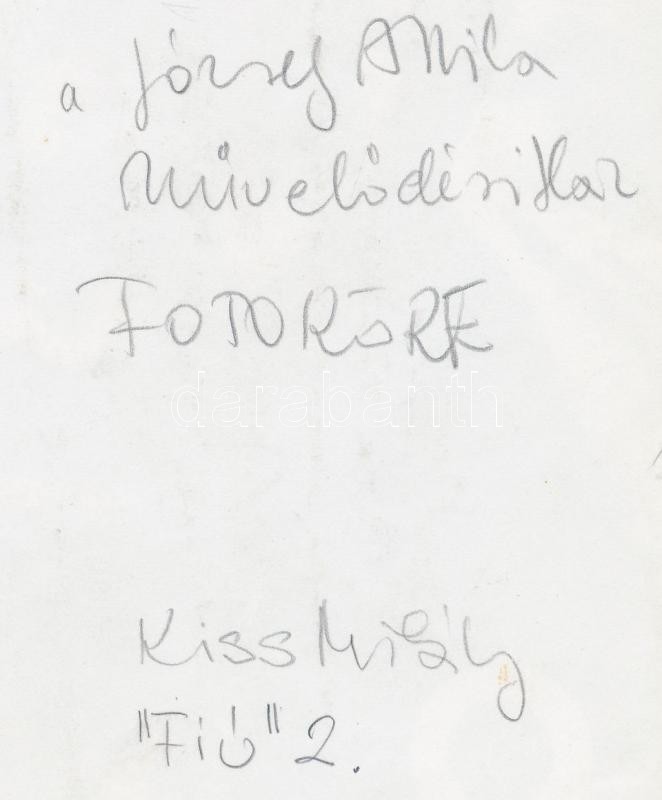 a József Attila
Művelődési Ház
FOTOKÖRE
darabanth
Kiss Mihály
"Fiú" 2.